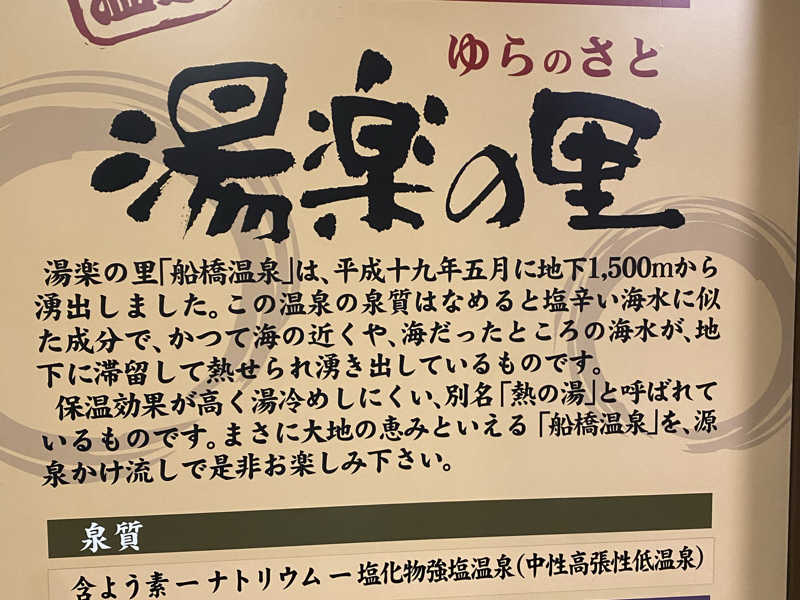 ゆらのさと
湯楽の里
湯楽の里「船橋温泉」は、平成十九年五月に地下1,500mから
湧出しました。この温泉の泉質はなめると塩辛い海水に似
た成分で、かつて海の近くや、海だったところの海水が、地
下に滞留して熱せられ湧き出しているものです。
保温効果が高く湯冷めしにくい、別名「熱の湯」と呼ばれて
いるものです。まさに大地の恵みといえる「船橋温泉」を、源
泉かけ流しで是非お楽しみ下さい。
泉質
含よう素ーナトリウムー塩化物強塩温泉(中性高張性低温泉)